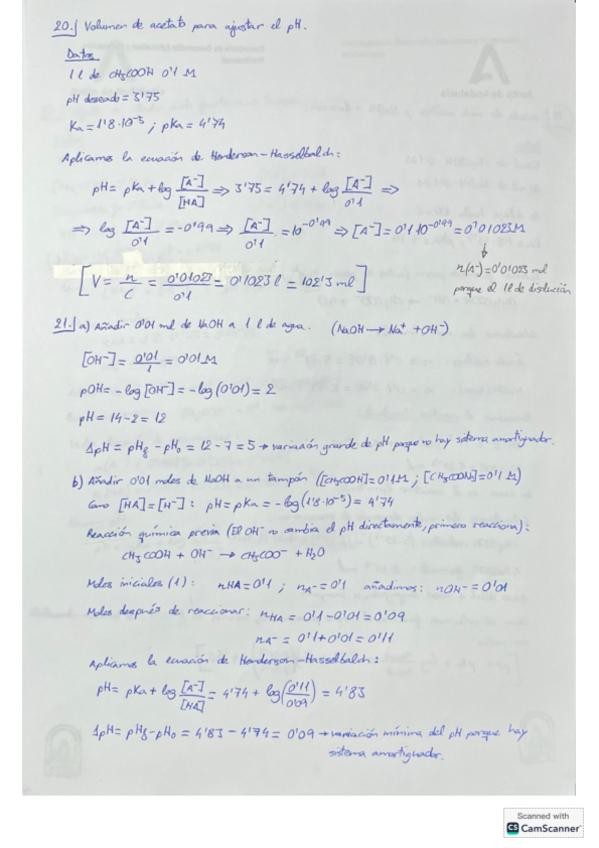 20.) Volumen de acetato para ajustar el pH.
Datos
1 l de CH₃COOH 0'1 M
pH deseado = 3'75
Ka = 1'8·10⁻⁵ ; pKa = 4'74
Aplicamos la ecuación de Henderson-Hasselbalch:
pH = pKa + log [A⁻]/[HA] ⇒ 3'75 = 4'74 + log [A⁻]/0'1 ⇒
⇒ log [A⁻]/0'1 = -0'99 ⇒ [A⁻]/0'1 = 10^-0'99 ⇒ [A⁻] = 0'1 10^-0'99 = 0'01023 M
↓
n(A⁻) = 0'01023 mol
porque es 1 l de disolución
[V = n/C = 0'01023/0'1 = 0'1023 l = 102'3 ml]
21.) a) Añadir 0'01 mol de NaOH a 1 l de agua. (NaOH → Na⁺ + OH⁻)
[OH⁻] = 0'01/1 = 0'01 M
pOH = -log [OH⁻] = -log (0'01) = 2
pH = 14 - 2 = 12
ΔpH = pHf - pH₀ = 12 - 7 = 5 → variación grande de pH porque no hay sistema amortiguador.
b) Añadir 0'01 moles de NaOH a un tampón ([CH₃COOH] = 0'1 M ; [CH₃COONa] = 0'1 M)
Como [HA] = [A⁻] : pH = pKa = -log (1'8·10⁻⁵) = 4'74
Reacción química previa (El OH⁻ no cambia el pH directamente, primero reacciona):
CH₃COOH + OH⁻ → CH₃COO⁻ + H₂O
Moles iniciales (1) : nHA = 0'1 ; nA⁻ = 0'1 añadimos: nOH⁻ = 0'01
Moles después de reaccionar: nHA = 0'1 - 0'01 = 0'09
nA⁻ = 0'1 + 0'01 = 0'11
Aplicamos la ecuación de Henderson-Hasselbalch:
pH = pKa + log [A⁻]/[HA] = 4'74 + log (0'11/0'09) = 4'83
ΔpH = pHf - pH₀ = 4'83 - 4'74 = 0'09 → variación mínima del pH porque hay
sistema amortiguador.
Scanned with
CS CamScanner